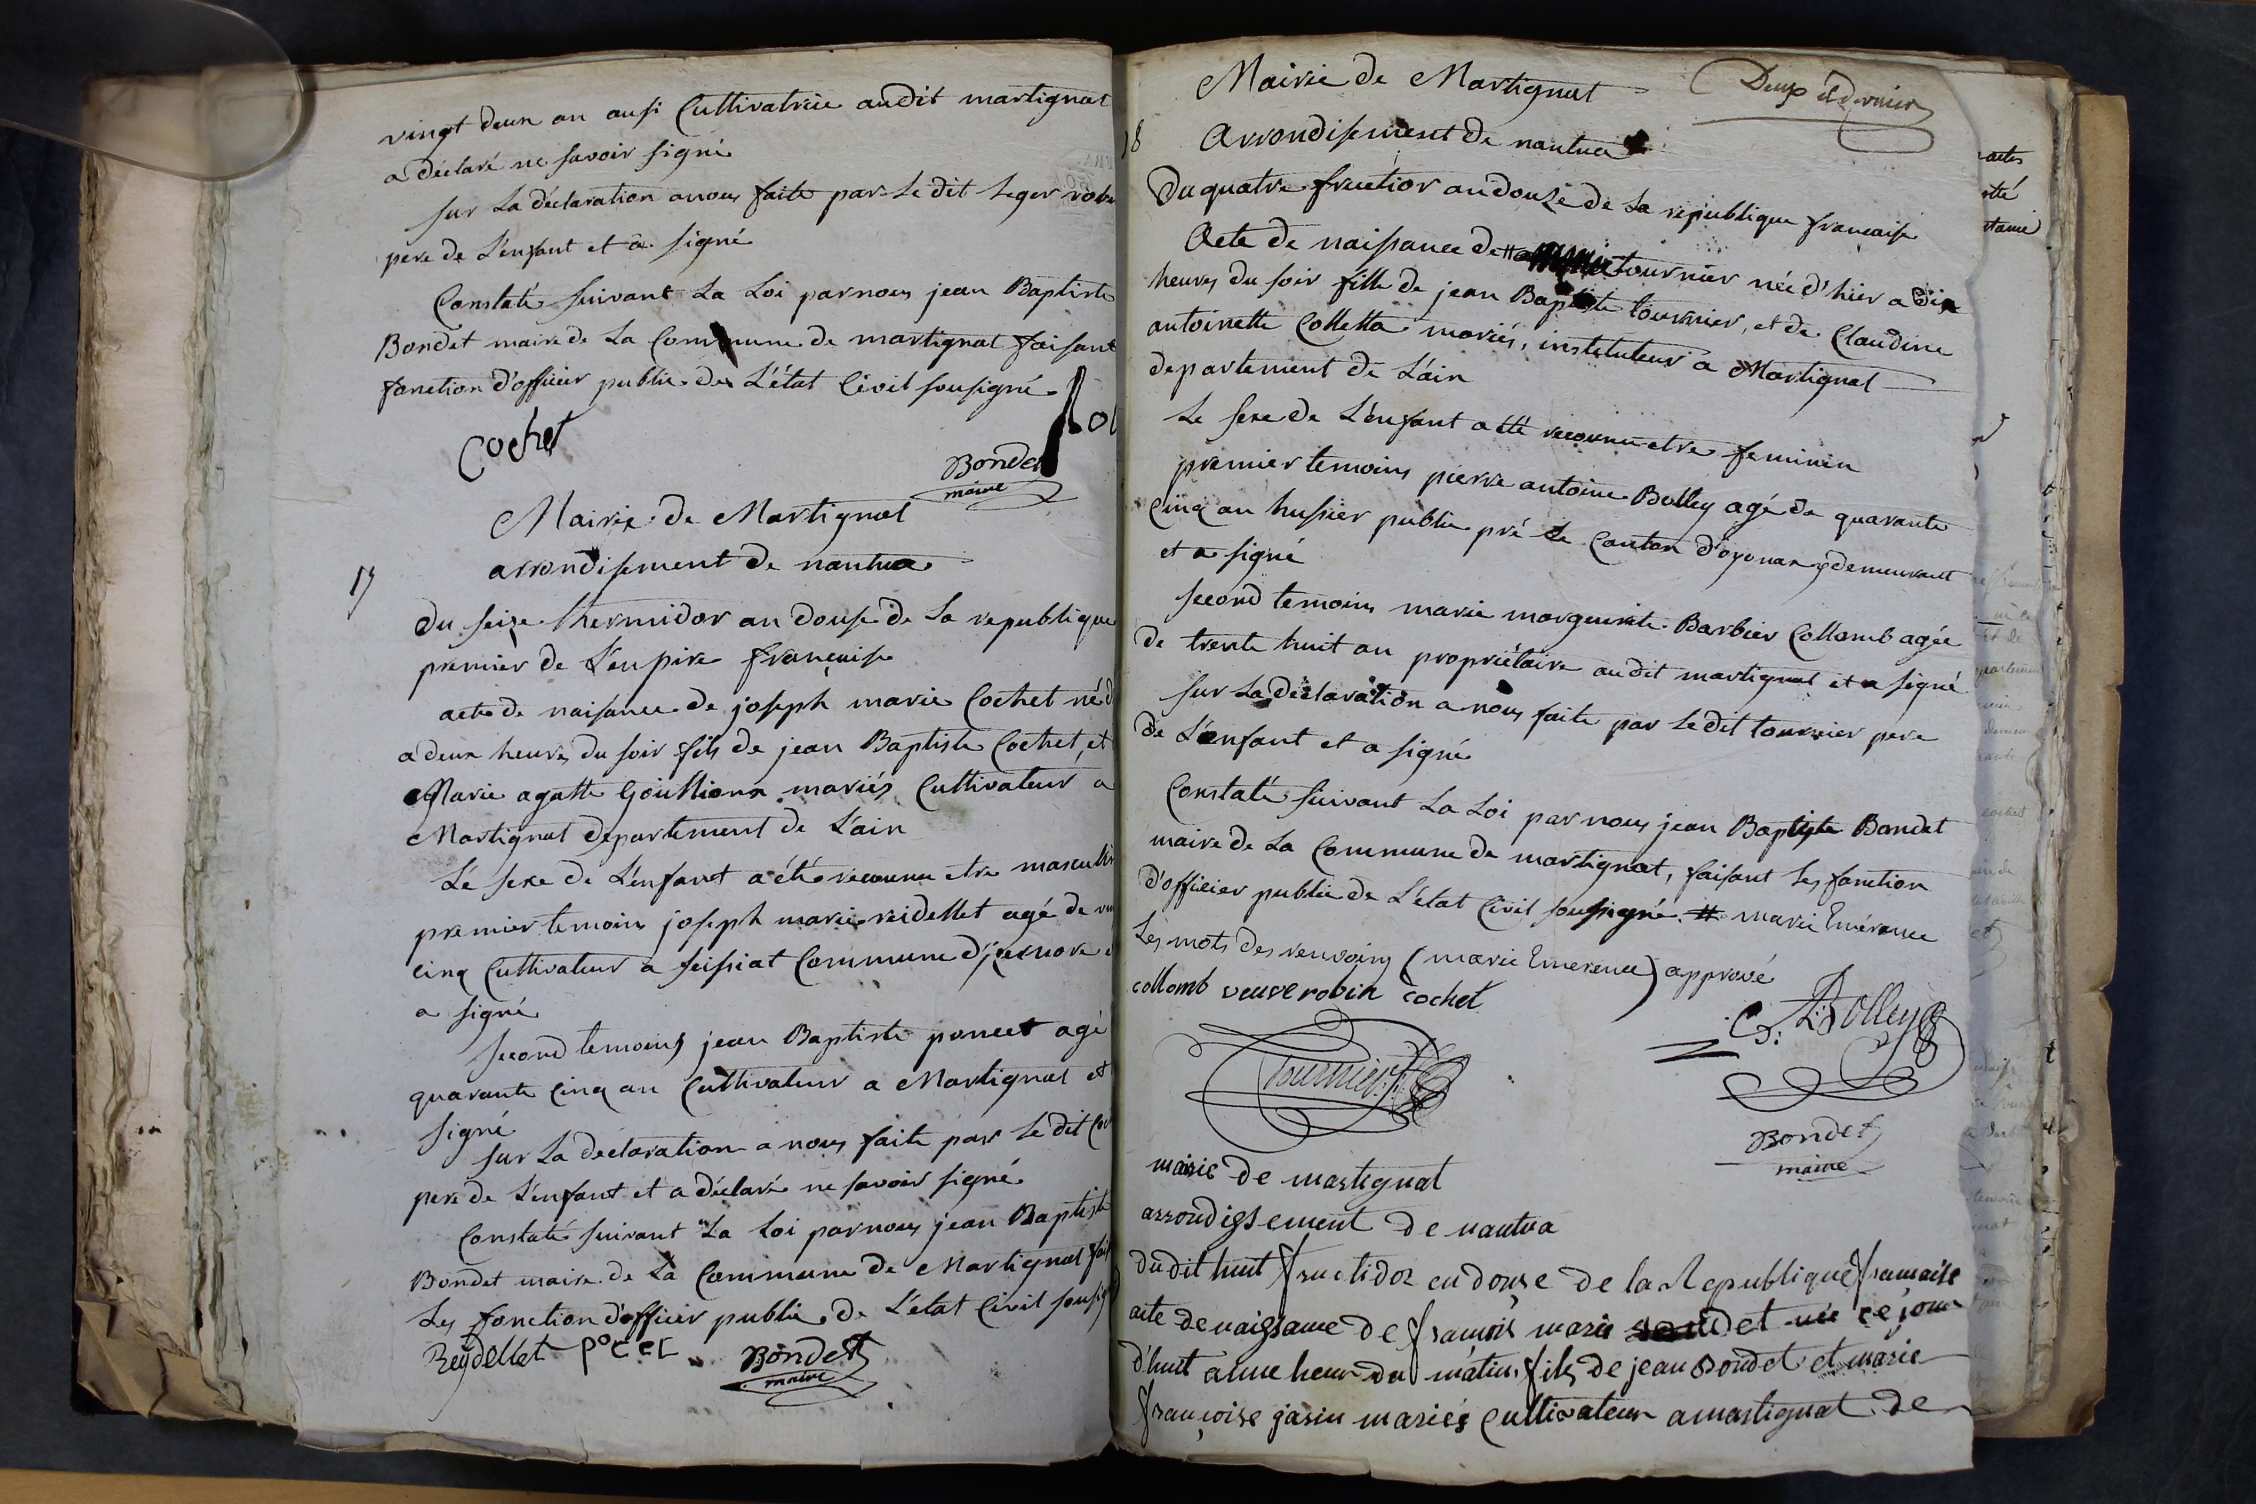 vingt deux an ausi Cultivatrice audit martignat
a déclaré ne savoir signé
sur La déclaration a nous faite par Le dit Leger robin
pere de L'enfant et a signé
Constaté suivant La Loi par nous jean Baptiste
Bondet maire de La Commune de martignat faisant
fonction d'officier public de L'état Civil sousigné
Cochet
Bondet
maire
Mairie de Martignat
arrondisement de nantua
17
Du seize thermidor an douse de La republique
premier de L'enpire française
acte de naisance de joseph marie Cochet né
a deux heures du soir fils de jean Baptiste Cochet, et
Marie agatte Gouillioux mariés Cultivateur a
Martignat departement de L'ain
Le sexe de L'enfant a été reconnu etre masculin
premier temoins joseph marie reidellet agé de
cinq Cultivateur a seissiat Commune d'jzernore
a signé
second temoins jean Baptiste poncet agé
quarante Cinq an Cultivateur a Martignat et
signé
sur La declaration a nous faite par Le dit
pere de L'enfant et a déclaré ne savoir signé
Constaté suivant La Loi par nous jean Baptiste
Bondet maire de La Commune de Martignat
Les fonction d'officier public de L'état Civil
Reydellet
Bondet
maire
Mairie de Martignat
Deux et dernier
18
Arrondisement de nantua
Du quatre fructior an douze de La republique francaise
Acte de naissance de # tournier née d'hier a dix
heures du soir fille de jean Baptiste tournier, et de Claudine
antoinette Colletta mariés, instituteur a Martignat
departement de L'ain
Le sexe de L'enfant a été reconnu etre feminin
premier temoins pierre antoine Bolley agé de quarante
Cinq an hussier public pré Le Canton d'oyonax y demeurant
et a signé
second temoins marie marguerite Barbier Collomb agée
de trente huit an propriétaire audit martignat et a signé
sur La déclaration a nous faite par Le dit tournier pere
de L'enfant et a signé
Constaté suivant La Loi par nous jean Baptiste Bondet
maire de La Commune de martignat, faisant Les fonction
d'officier public de L'état Civil soussigné # marie Emérance
Les mots des renvoins (marie Emerence) apprové
collomb veuve robin cochet
Bolley
Tournier
Bondet
maire
mairie de martignat
arrondissement de nantua
du dit huit fructidor en douse de la Republique francaise
acte de naissance de françois marie Bondet née ce jour
d'huit a une heur du matin fils de jean Bondet et marie
françoise jasin mariés Cultivateur a martignat de